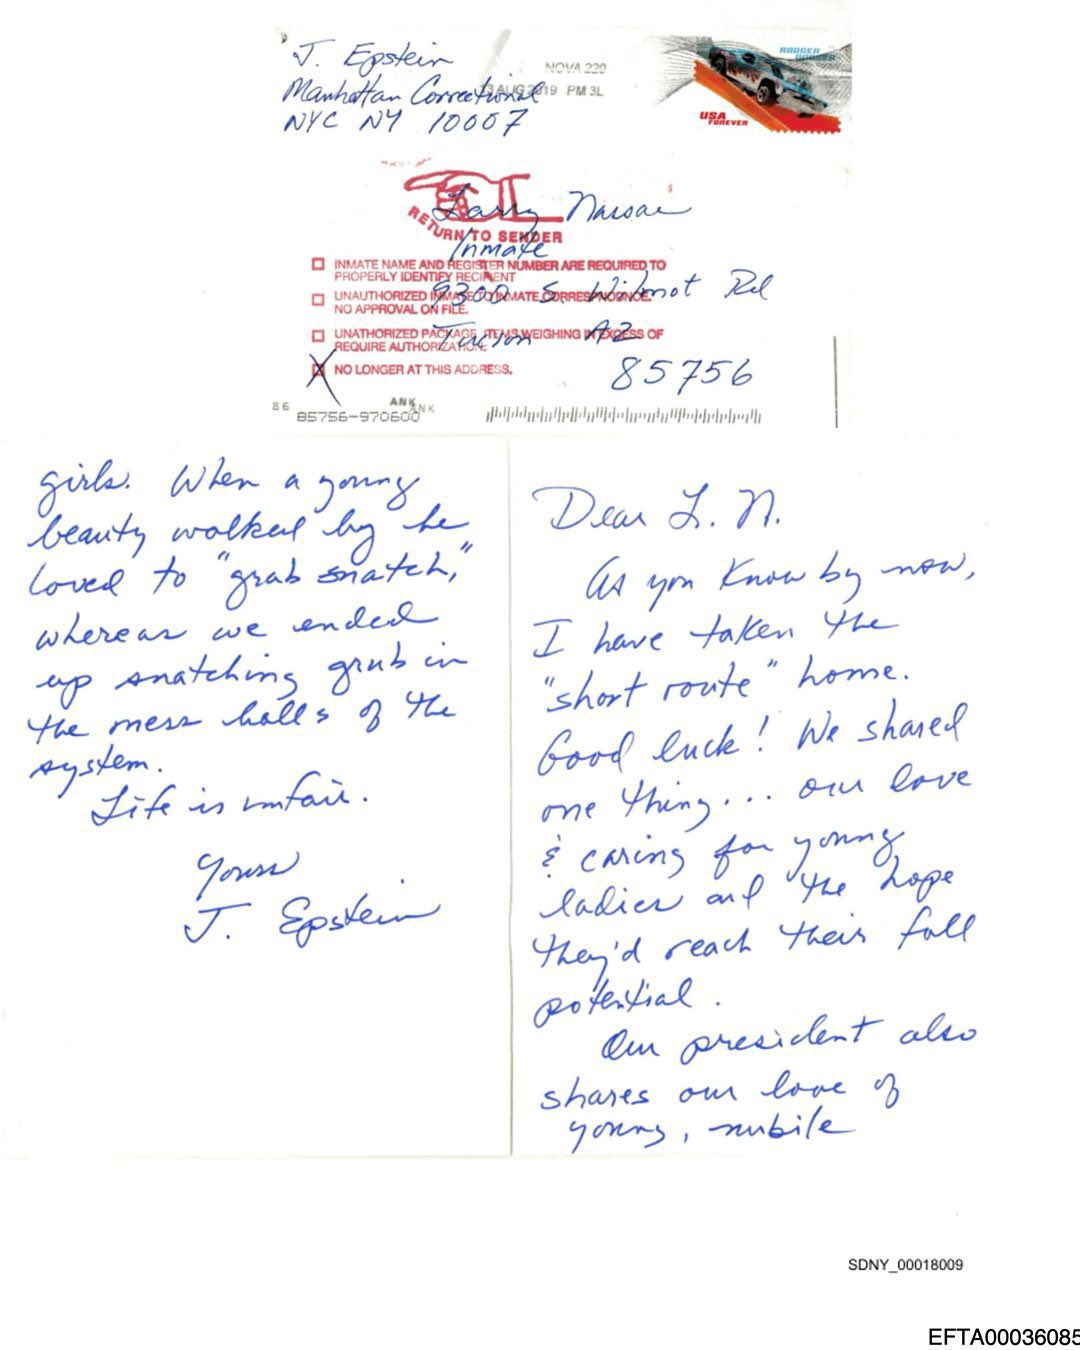 J. Epstein
Manhattan Correctional
NYC NY 10007
NOVA 220
13 AUG 2019 PM 3L
RODGER
DODGER
USA
FOREVER
Larry Nassar
Inmate
9300 S. Wilmot Rd
Tucson AZ
85756
RETURN TO SENDER
INMATE NAME AND REGISTER NUMBER ARE REQUIRED TO
PROPERLY IDENTIFY RECIPIENT
UNAUTHORIZED INMATE TO INMATE CORRESPONDENCE.
NO APPROVAL ON FILE.
UNATHORIZED PACKAGE, ITEMS WEIGHING IN EXCESS OF
REQUIRE AUTHORIZATION.
NO LONGER AT THIS ADDRESS.
86
ANK
ANK
85756-970600
Dear L. N.
As you know by now,
I have taken the
"short route" home.
Good luck! We shared
one thing... our love
& caring for young
ladies and the hope
they'd reach their full
potential.
Our president also
shares our love of
young, nubile
girls. When a young
beauty walked by he
loved to "grab snatch,"
whereas we ended
up snatching grub in
the mess halls of the
system.
Life is unfair.
Yours
J. Epstein
SDNY_00018009
EFTA00036085